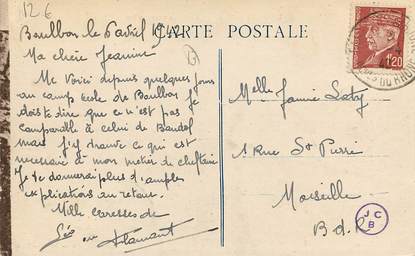 12 €
Boulbon le 6 avril 1942
CARTE POSTALE
Ma chère Jeannine
Me voici depuis quelques jours
au camp école de Boulbon je
dois te dire que ce n'est pas
comparable à celui de Bandol
mais j'y trouve ce qui est
nécessaire à mon métier de cheftaine
Je te donnerai plus d'amples
explications au retour.
Mille caresses de
Flamant
Melle Jeannine
1 Rue St Pierre
Marseille
B.d.R
1f20
DU RHONE
J C
B